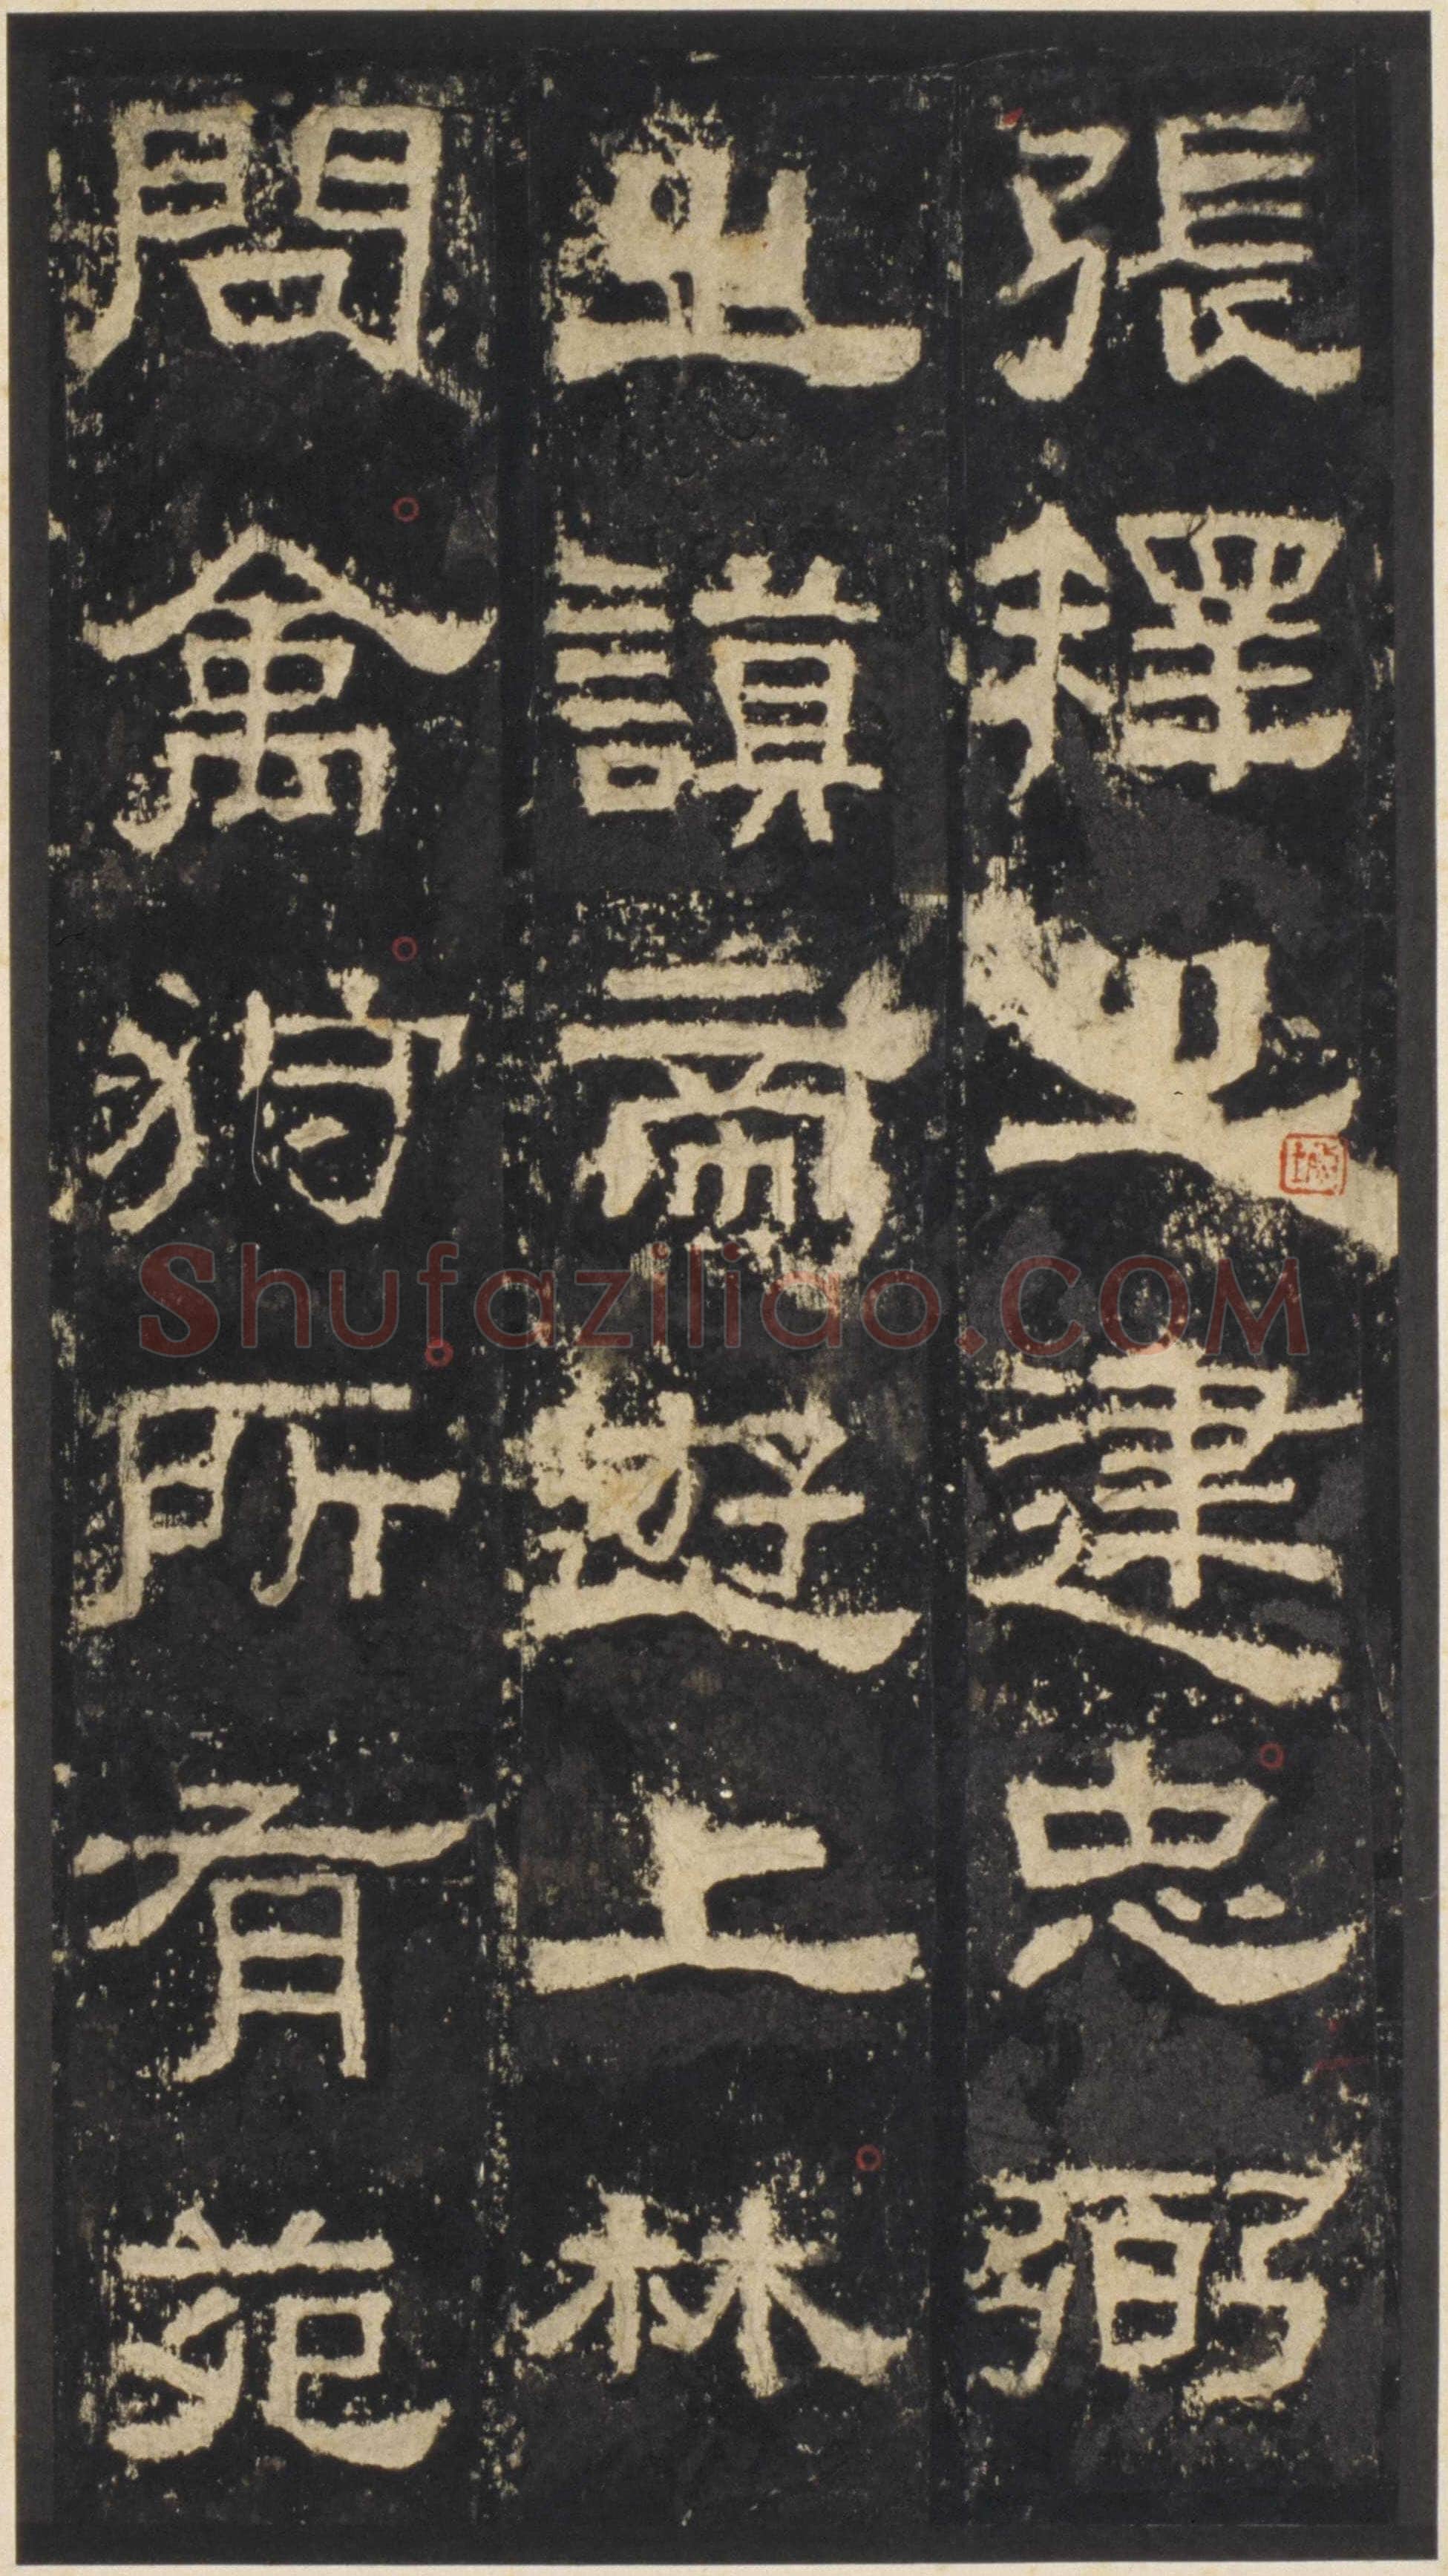 張釋之建忠弼
之謨帝遊上林
問禽狩所有苑
Shufaziliao.COM